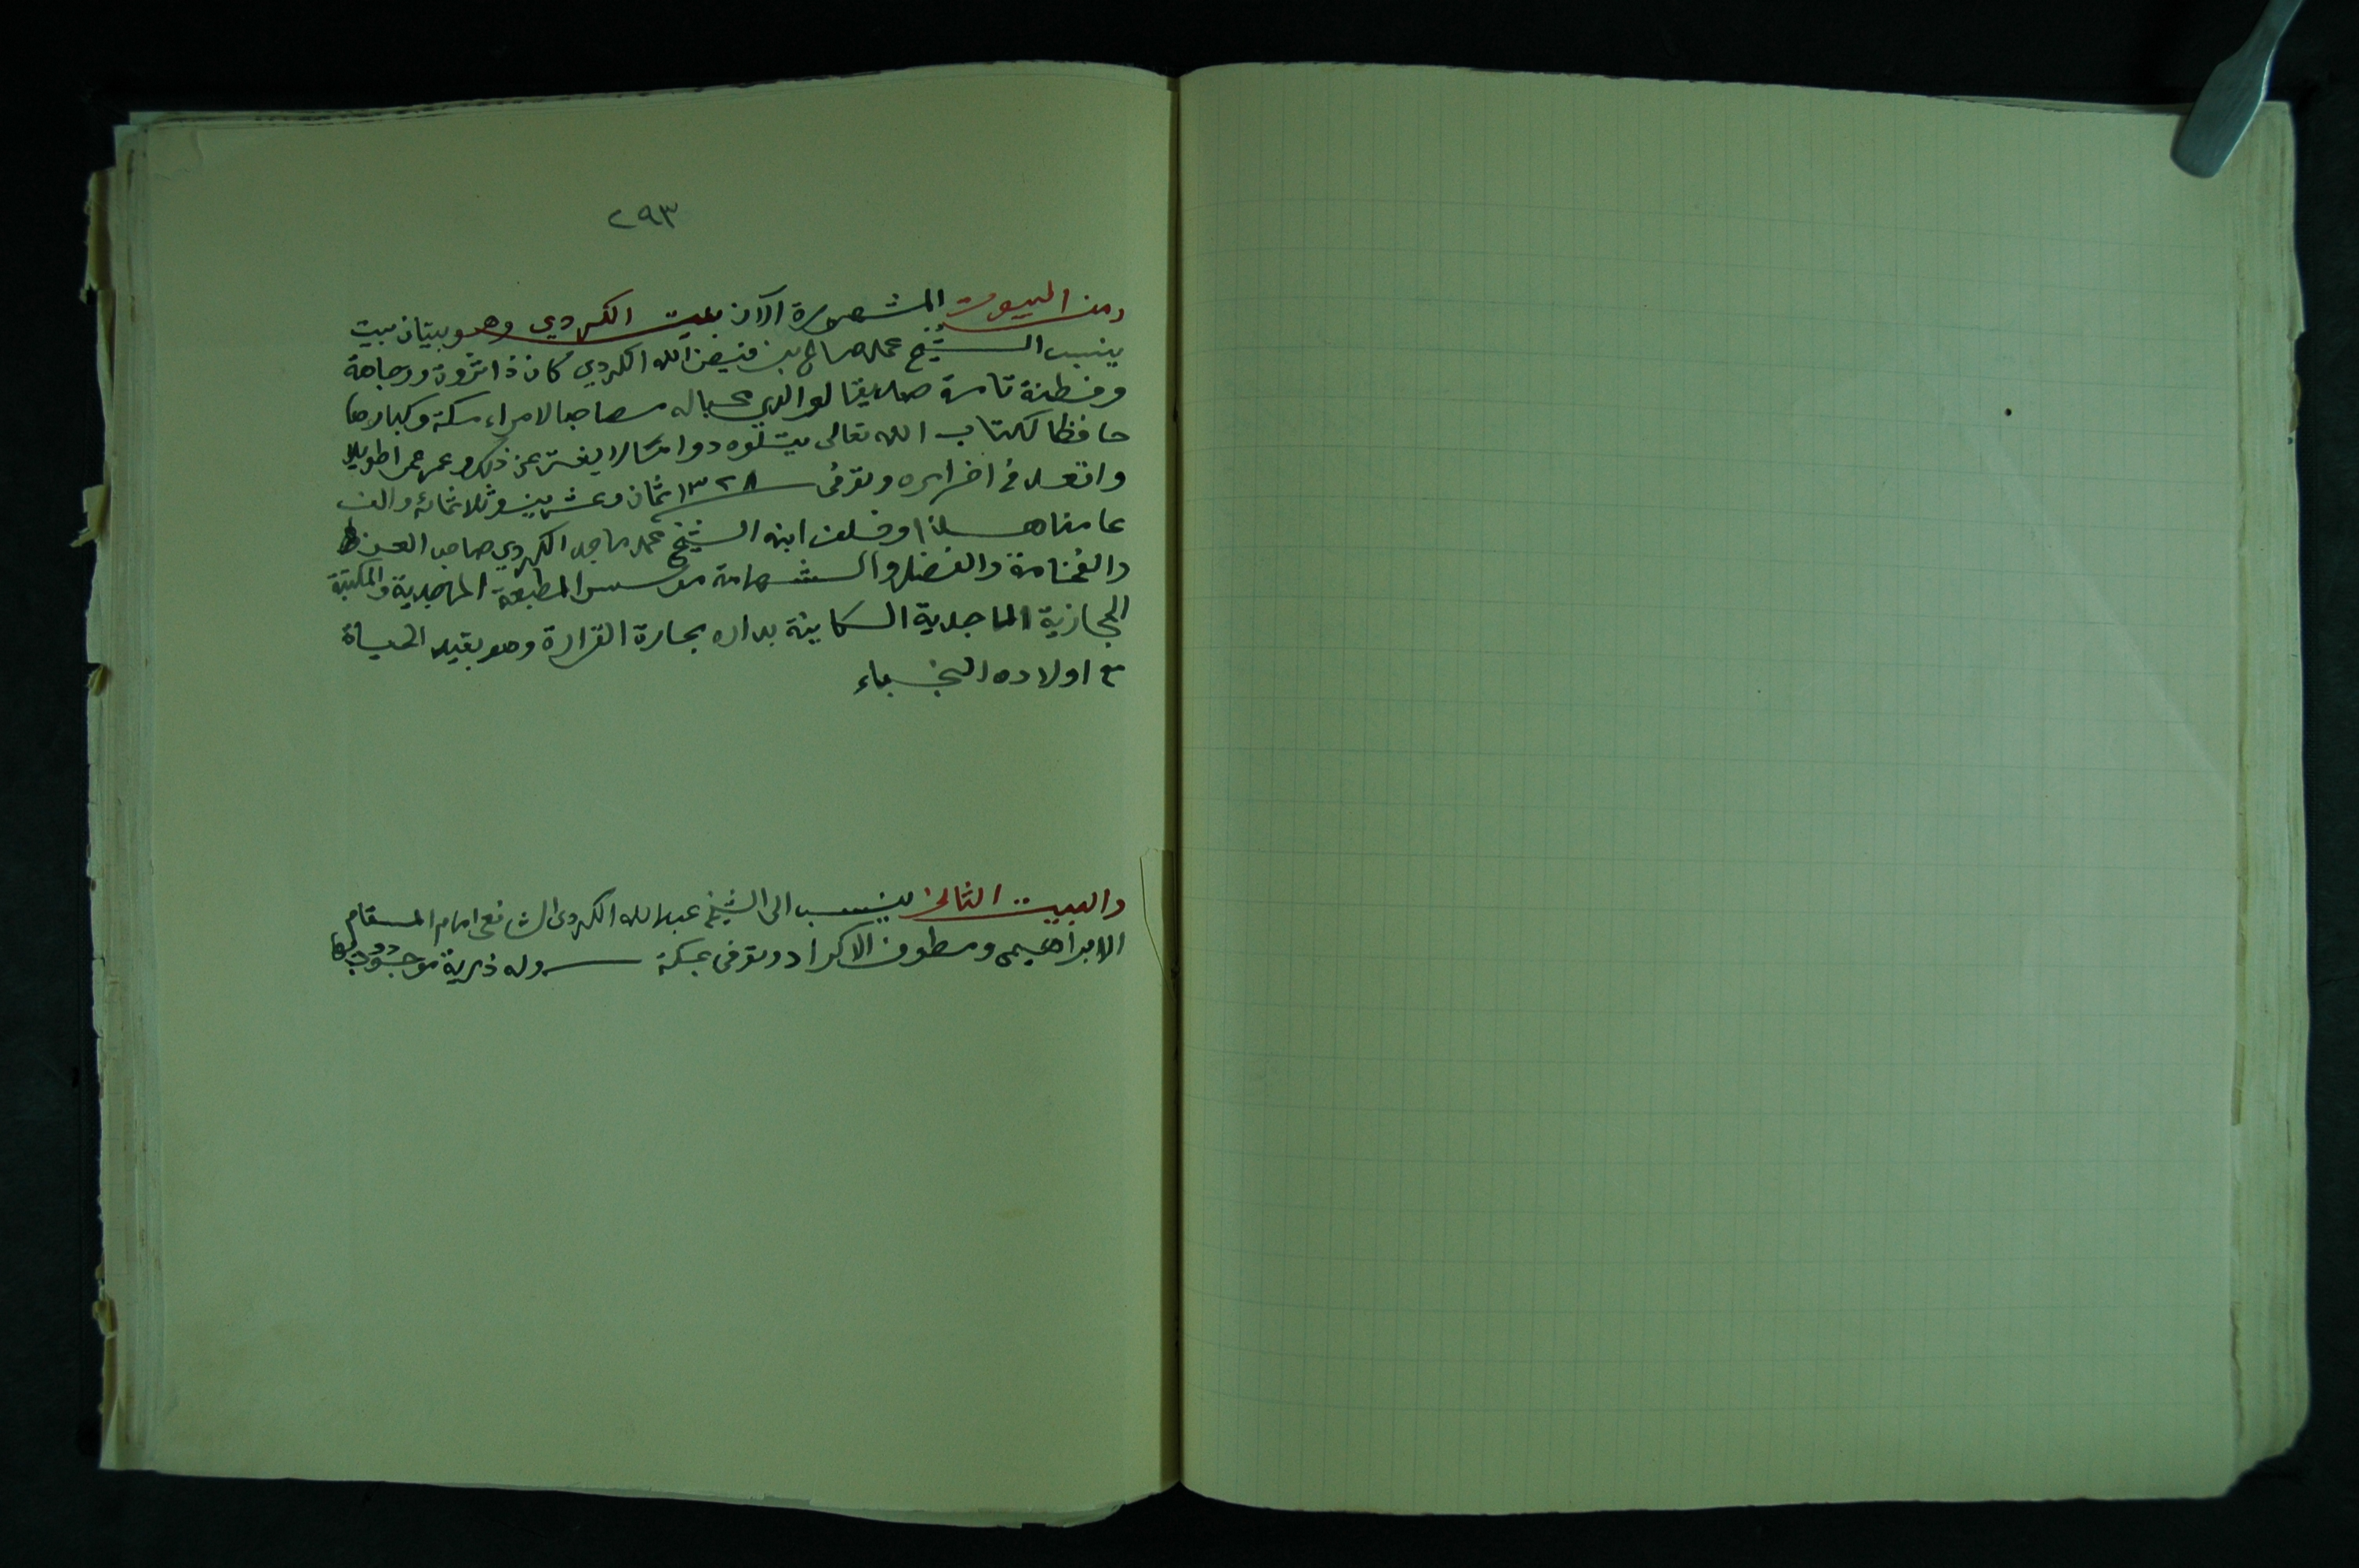 ٢٩٣
ومن البيوت المشهورة الآن بيت الكردي وهو بيتان بيت
ينسب الشيخ محمد صالح بن فيض الله الكردي كان ذا ثروة ووجاهة
وفطنة تامة صديقا لوالدي محبا له مصاحبا لامراء مكة وكبارها
حافظا لكتاب الله تعالى يتلوه دواما لا يفتر عن ذلك وعمر عمرا طويلا
واقعد في اخر امره وتوفى ١٣٢٨ ثمان وعشرين وثلاثمائة والف
عامنا هذا وخلف ابنه الشيخ محمد ماجد الكردي صاحب العز
والفخامة والفضل والشهامة مؤسس المطبعة الماجدية والمكتبة
الحجازية الماجدية الكاينة بداره بحارة القرارة وهو بقيد الحياة
مع اولاده النجباء
والبيت الثاني ينسب الى الشيخ عبد الله الكردى الشافعى امام المقام
الابراهيمى ومطوف الاكراد وتوفى بمكة وله ذرية موجودون بها